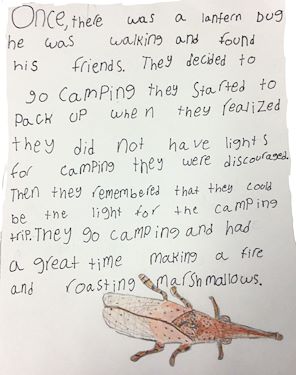 Once, there was a lantern bug
he was walking and found
his friends. They decided to
go camping they started to
pack up when they realized
they did not have lights
for camping they were discouraged.
Then they remembered that they could
be the light for the camping
trip. They go camping and had
a great time making a fire
and roasting marshmallows.